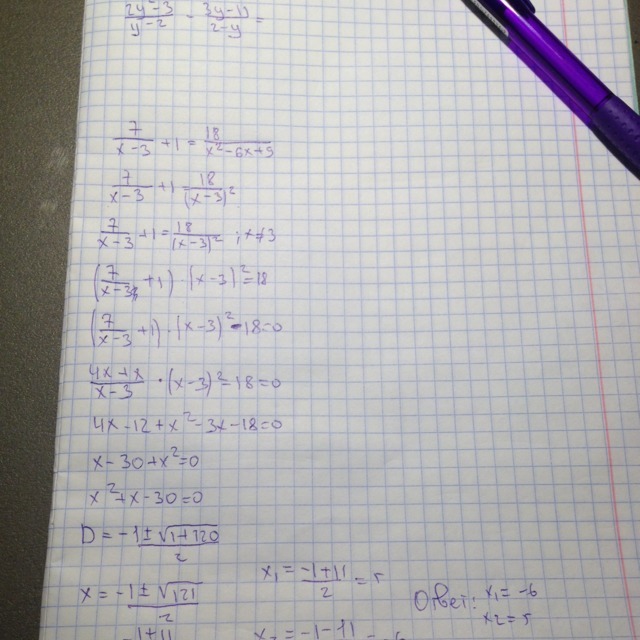 2y-3/y-2 - 3y-11/2-y =
7/x-3 + 1 = 18/x²-6x+9
7/x-3 + 1 = 18/(x-3)²
7/x-3 + 1 = 18/(x-3)² ; x≠3
(7/x-3 + 1) · (x-3)² = 18
(7/x-3 + 1) · (x-3)² - 18=0
4x+x/x-3 · (x-3)² - 18=0
4x-12+x²-3x-18=0
x-30+x²=0
x²+x-30=0
D = -1±√1+120/2
x = -1±√121/2
x₁ = -1+11/2 = 5
Ответ: x₁=-6
x₂=5
-1+11
x₂ = -1-11 = -6